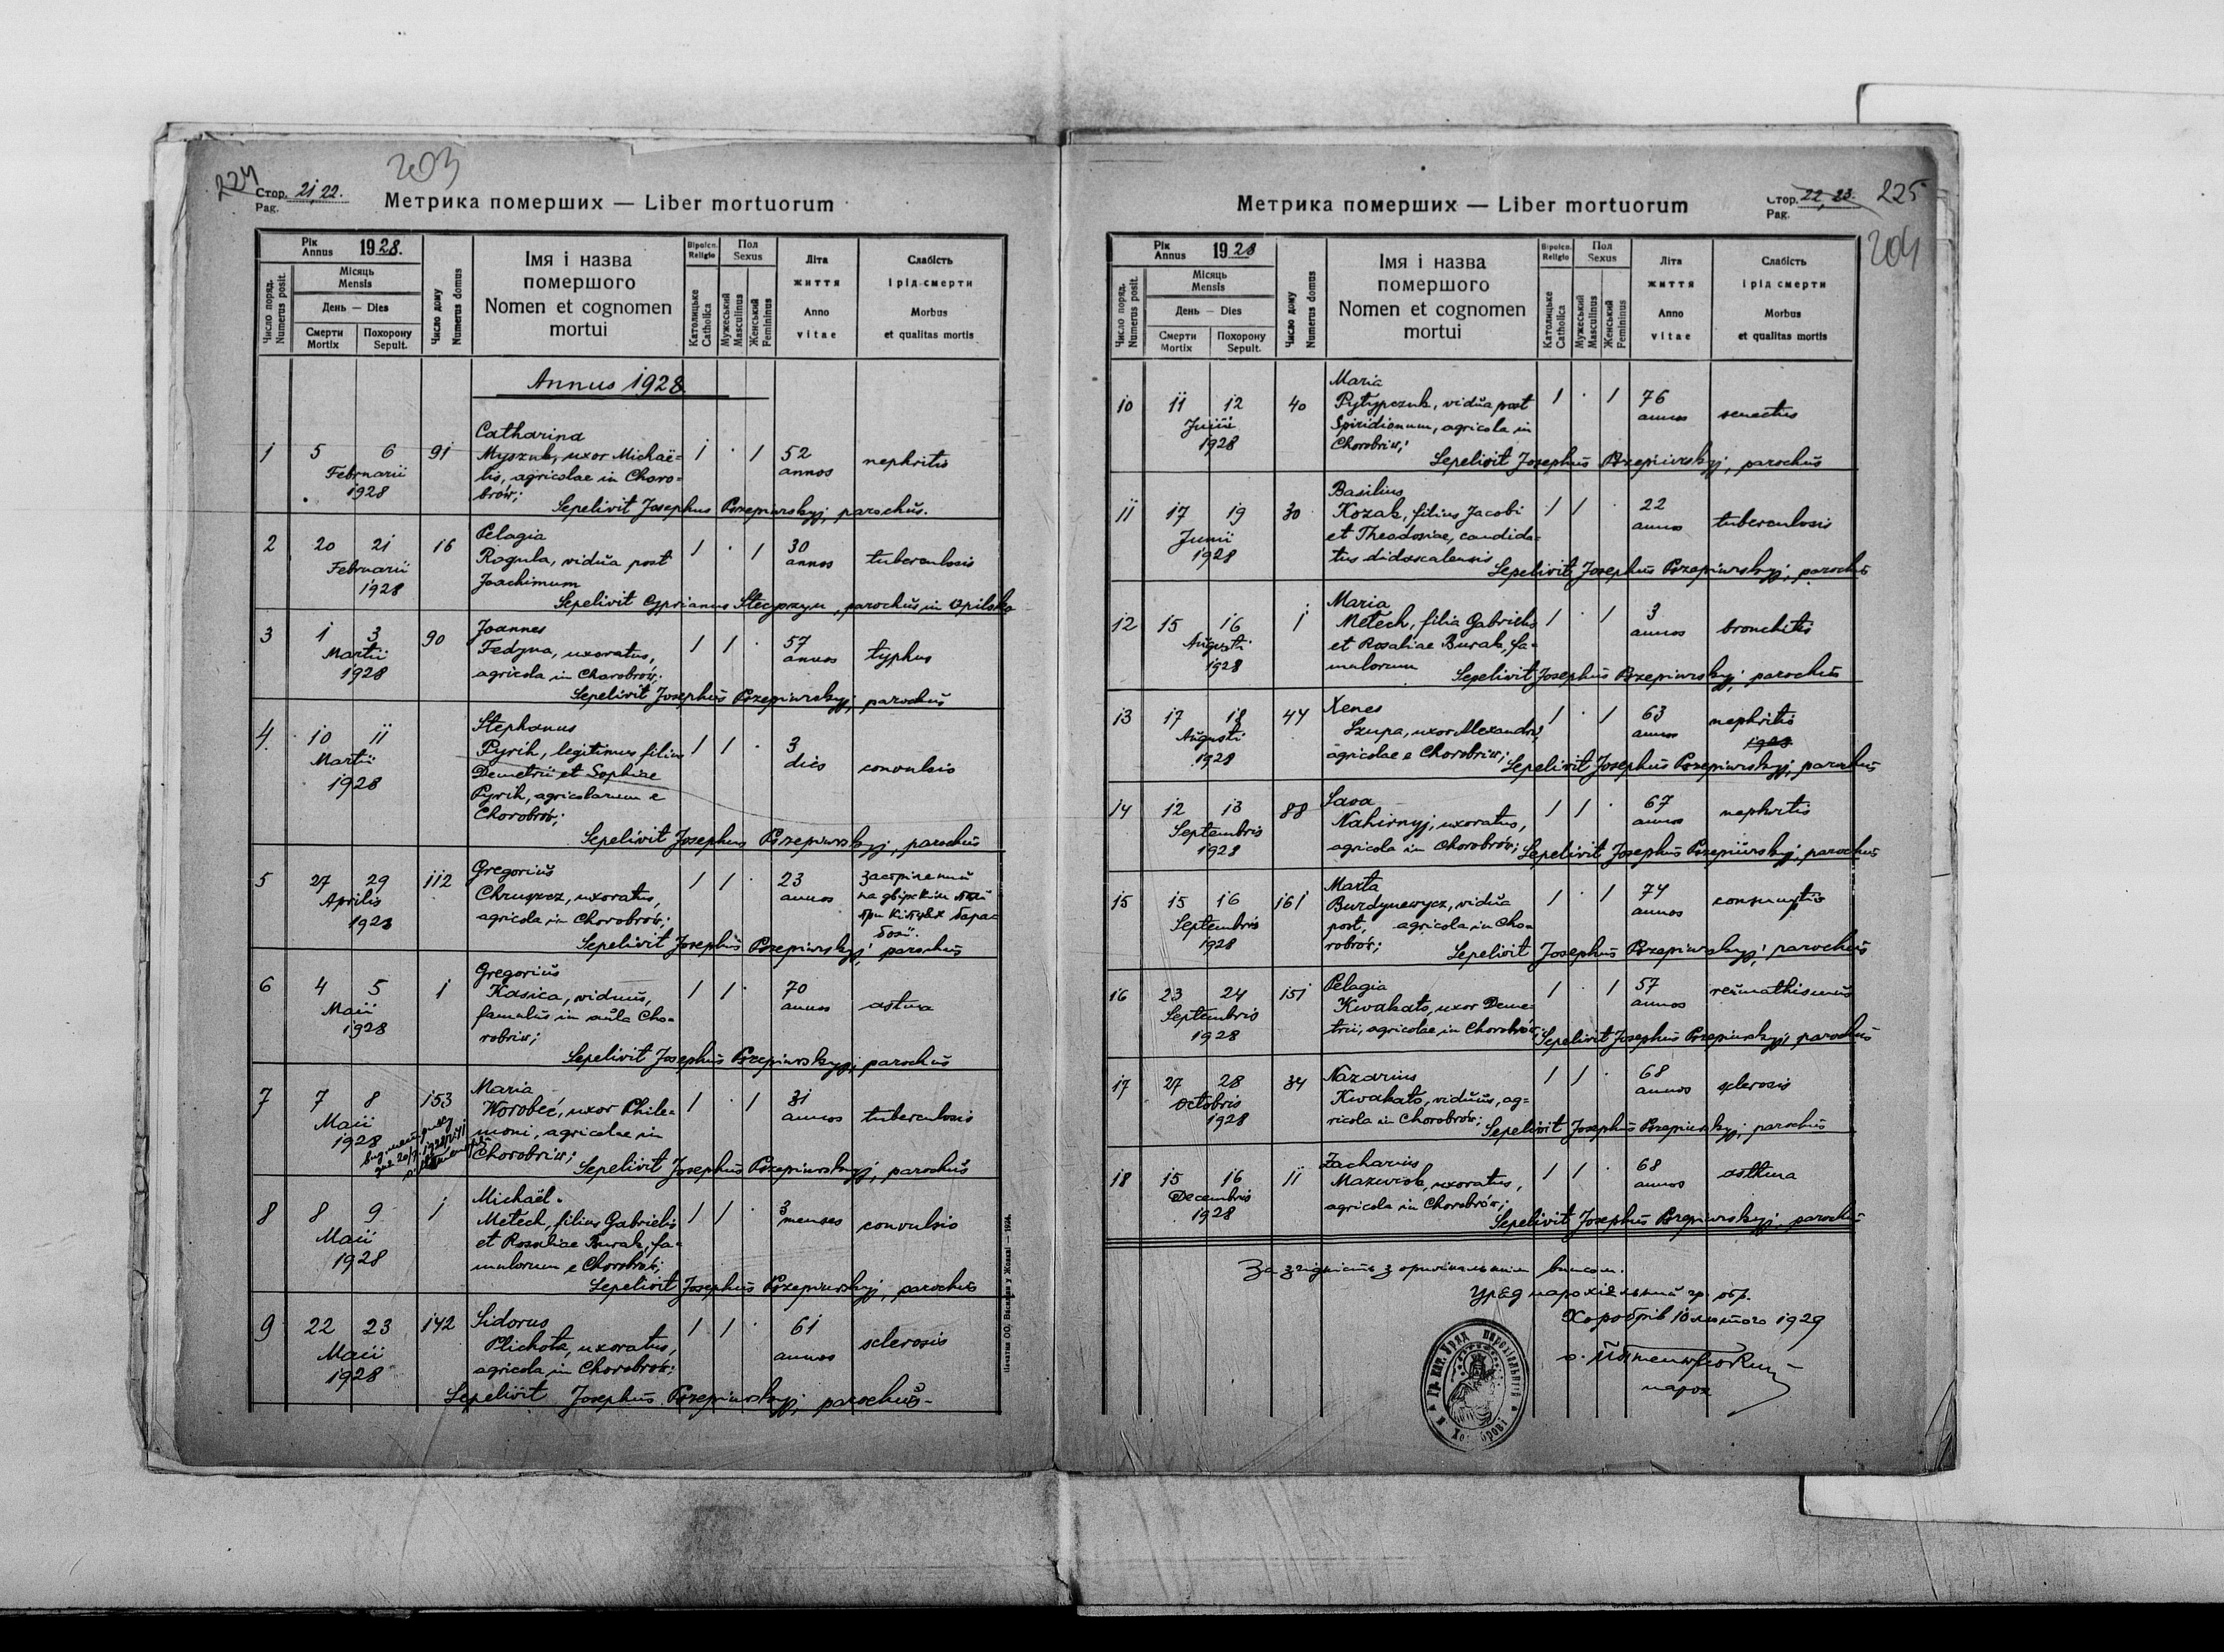 224
203
Стор. 21, 22.
Pag.
Метрика померших — Liber mortuorum
Рік
Annus
1928.
Число поряд.
Numerus posit.
Місяць
Mensis
День — Dies
Смерти
Mortix
Похорону
Sepult.
Число дому
Numerus domus
Імя і назва
помершого
Nomen et cognomen
mortui
Віроісп.
Religio
Католицьке
Catholica
Пол
Sexus
Мужеський
Masculinus
Женський
Femininus
Літа
життя
Anno
vitae
Слабість
і рід смерти
Morbus
et qualitas mortis
Annus 1928
1 5 6 Februarii 1928 91
Catharina
Myszuk, uxor Michaë=
lis, agricolae in Choro=
brów;
1 · 1 52 annos nephritis
Sepelivit Josephus parochus.
2 20 21 Februarii 1928 16
Pelagia
Rogula, vidŭa post
Joachimum
1 · 1 30 annos tuberculosis
Sepelivit Cyprianus parochŭs in Opilsko
3 1 3 Martii 1928 90
Joannes
Fedyna, uxoratus,
agricola in Chorobrów;
1 1 · 57 annos typhus
Sepelivit Josephŭs parochŭs
4 10 11 Martii 1928
Stephanus
Pyrih, legitimus filius
Demetrii et Sophiae
Pyrih, agricolarum e
Chorobrów;
1 1 · 3 dies convulsio
Sepelivit Josephus parochŭs
5 27 29 Aprilis 1928 112
Gregoriŭs
Chruszcz, uxoratus,
agricola in Chorobrów;
1 1 · 23 annos застрілений
на двірськім полі
при кіпцях бара=
болі.
Sepelivit Josephŭs parochŭs
6 4 5 Maii 1928 1
Gregoriŭs
Kasica, viduŭs,
famulŭs in aŭla Cho=
robriw;
1 1 · 70 annos astma
Sepelivit Josephŭs parochŭs
7 7 8 Maii 1928 153
Maria
Worobeć, uxor Phile=
moni, agricolae in
Chorobriw;
1 · 1 31 annos tuberculosis
Sepelivit Josephŭs parochŭs
8 8 9 Maii 1928 1
Michaël
Metech, filius Gabrielis
et Rosaliae Burak, fa=
mulorum e Chorobrów;
1 1 · 3 menses convulsio
Sepelivit Josephŭs parochŭs
9 22 23 Maii 1928 142
Sidorus
Plichota, uxoratus,
agricola in Chorobrów;
1 1 · 61 annos sclerosis
Sepelivit Josephŭs parochŭs
Метрика померших — Liber mortuorum
Стор. 22, 23.
Pag.
225
204
Рік
Annus
1928
Число поряд.
Numerus posit.
Місяць
Mensis
День — Dies
Смерти
Mortix
Похорону
Sepult.
Число дому
Numerus domus
Імя і назва
помершого
Nomen et cognomen
mortui
Віроісп.
Religio
Католицьке
Catholica
Пол
Sexus
Мужеський
Masculinus
Женський
Femininus
Літа
життя
Anno
vitae
Слабість
і рід смерти
Morbus
et qualitas mortis
10 11 12 Junii 1928 40
Maria
vidŭa post
Spiridionum, agricola in
Chorobriw;
1 · 1 76 annos senectus
Sepelivit Josephŭs parochŭs
11 17 19 Junii 1928 30
Basilius
Kozak, filius Jacobi
et Theodosiae, candida=
tus didascalensis
1 1 · 22 annos tuberculosis
Sepelivit Josephŭs parochŭs
12 15 16 Aŭgusti 1928 1
Maria
Metech, filia Gabrielis
et Rosaliae Burak, fa=
mulorum
1 · 1 3 annos bronchitis
Sepelivit Josephŭs parochŭs
13 17 18 Aŭgusti 1928 44
Xenes
Szupa, uxor Alexandri,
agricolae e Chorobriw;
1 · 1 63 annos nephritis
1928
Sepelivit Josephŭs parochŭs
14 12 13 Septembris 1928 88
Sava
Nahirnyj, uxoratus,
agricola in Chorobrów;
1 1 · 67 annos nephritis
Sepelivit Josephŭs parochŭs
15 15 16 Septembris 1928 161
Marta
Burdynewycz, vidŭa
post, agricola in Cho=
robrów;
1 · 1 74 annos consumptio
Sepelivit Josephŭs parochŭs
16 23 24 Septembris 1928 151
Pelagia
Kwakato, uxor Deme=
trii, agricolae in Chorobrów;
1 · 1 57 annos reŭmathismŭs
Sepelivit Josephŭs parochŭs
17 27 28 Octobris 1928 34
Nazarius
Kwakato, vidŭŭs, ag=
ricola in Chorobrów;
1 1 · 68 annos sclerosis
Sepelivit Josephŭs parochŭs
18 15 16 Decembris 1928 11
Zacharius
uxoratus,
agricola in Chorobrów;
1 1 · 68 annos asthma
Sepelivit Josephŭs parochŭs
За згідність з оригінальним
Уряд парохіяльний гр. обр.
Хоробрів 10 лютого 1929
парох